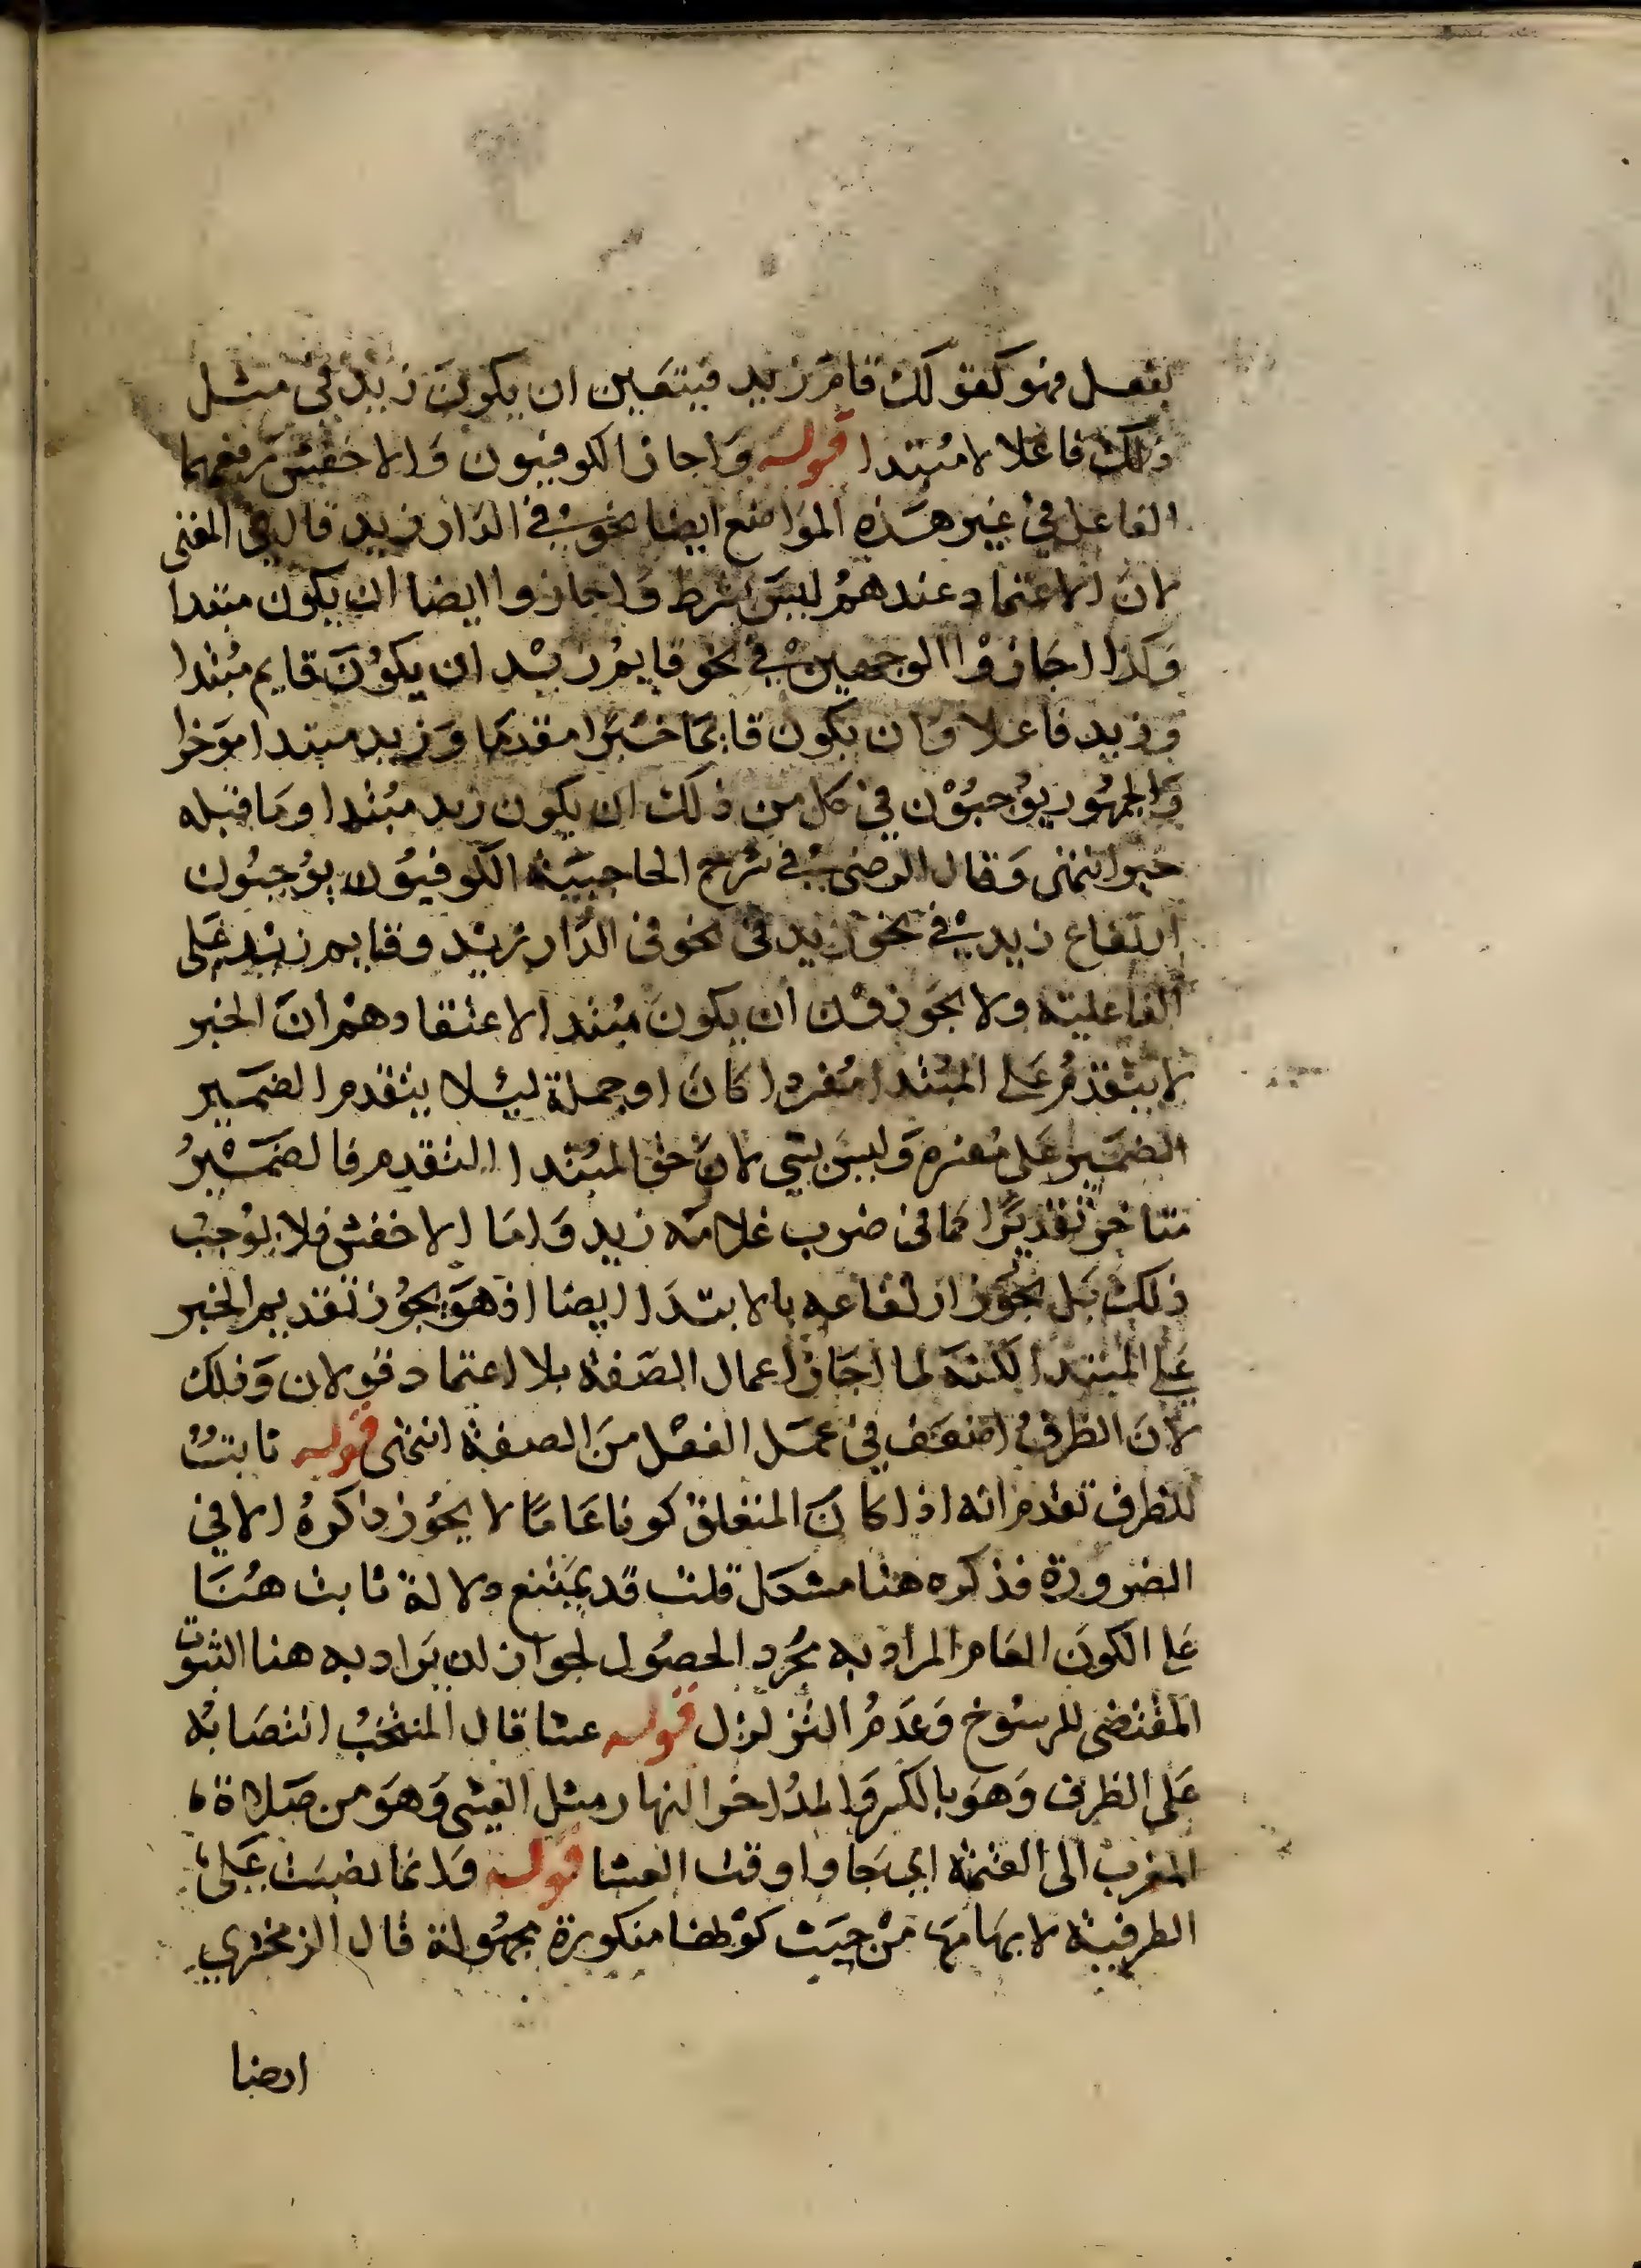 لفعل فهو كقولك قام زيد فيتعين ان يكون زيد في مثل
ذلك فاعلا لا مبتدا قوله واجاز الكوفيون والاخفش رفعهما
الفاعل في غير هذه المواضع ايضا نحو في الدار زيد قال في المغنى
لان الاعتماد عندهم ليس بشرط واجازوا ايضا ان يكون مبتدا
وكذا اجازوا الوجهين في نحو قايم زيد ان يكون قايم مبتدا
وزيد فاعلا وان يكون قايما خبرا مقدما وزيد مبتدا موخرا
والجمهور يوجبون في كل من ذلك ان يكون زيد مبتدا وما قبله
خبرا انتهى وقال الرضى في شرح الحاجبية الكوفيون يوجبون
ارتفاع زيد في نحو زيد في نحو في الدار زيد وقايم زيد على
الفاعلية ولا يجوزون ان يكون مبتدا لاعتقادهم ان الخبر
لا يتقدم على المبتدا مفردا كان او جملة ليلا يتقدم الضمير
الضمير على مفسره وليس بشي لان حق المبتدا التقدم فالضمير
متاخر تقديرا كما في ضرب غلامه زيد واما الاخفش فلا يوجب
ذلك بل يجوز ارتفاعه بالابتدا ايضا اذ هو يجوز تقديم الخبر
على المبتدا لكنه لما اجاز اعمال الصفة بلا اعتماد قولان وذلك
لان الظرف اضعف في عمل الفعل من الصفة انتهى قوله ثابت
للظرف تقدم انه اذا كان المتعلق كونا عاما لا يجوز ذاكره الا في
الضرورة فذكره هنا مشكل قلت قد يمتنع دلالة ثابت هنا
على الكون العام المراد به مجرد الحصول لجواز ان يراد به هنا الثبوت
المقتضى للرسوخ وعدم التزلزل قوله عشا قال المنتخب انتصابه
على الظرف وهو بالكسر والمد اخر النهار مثل العيشى وهو من صلاة
المغرب الى العتمة اي جاوا وقت العشا قوله وانما نصبت على
الظرفية لابهامها من حيث كونها منكورة مجهولة قال الزمخشري
ايضا